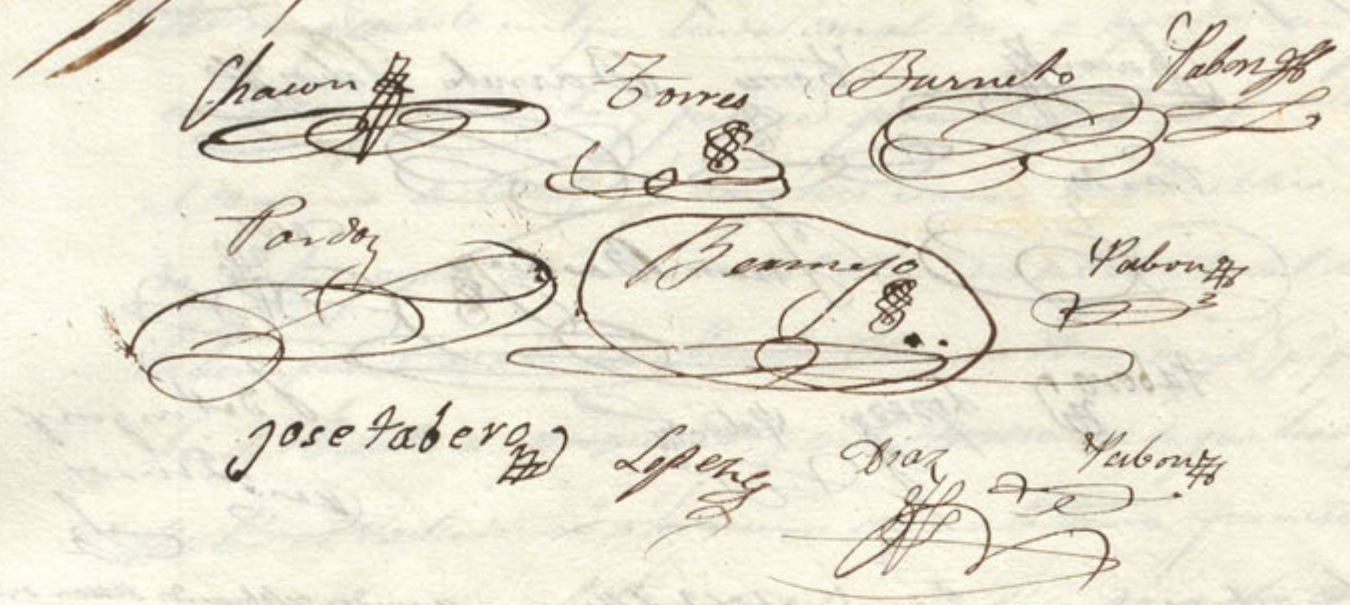 Chacon Torres Burneto Pabon
Pardo Bermejo Pabon
Jose tabero Lopez Diaz Pabon